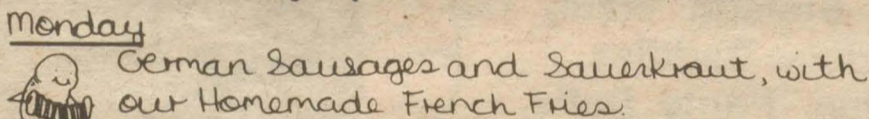 Monday
German Sausages and Sauerkraut, with
our Homemade French Fries.